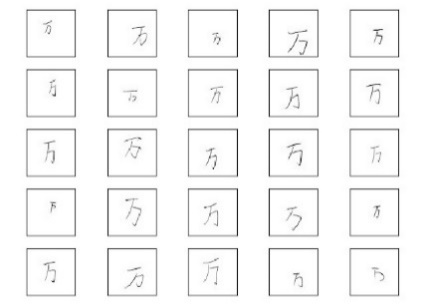 万 万 万 万 万
万 万 万 万 万
万 万 万 万 万
万 万 万 万 万
万 万 万 万 万